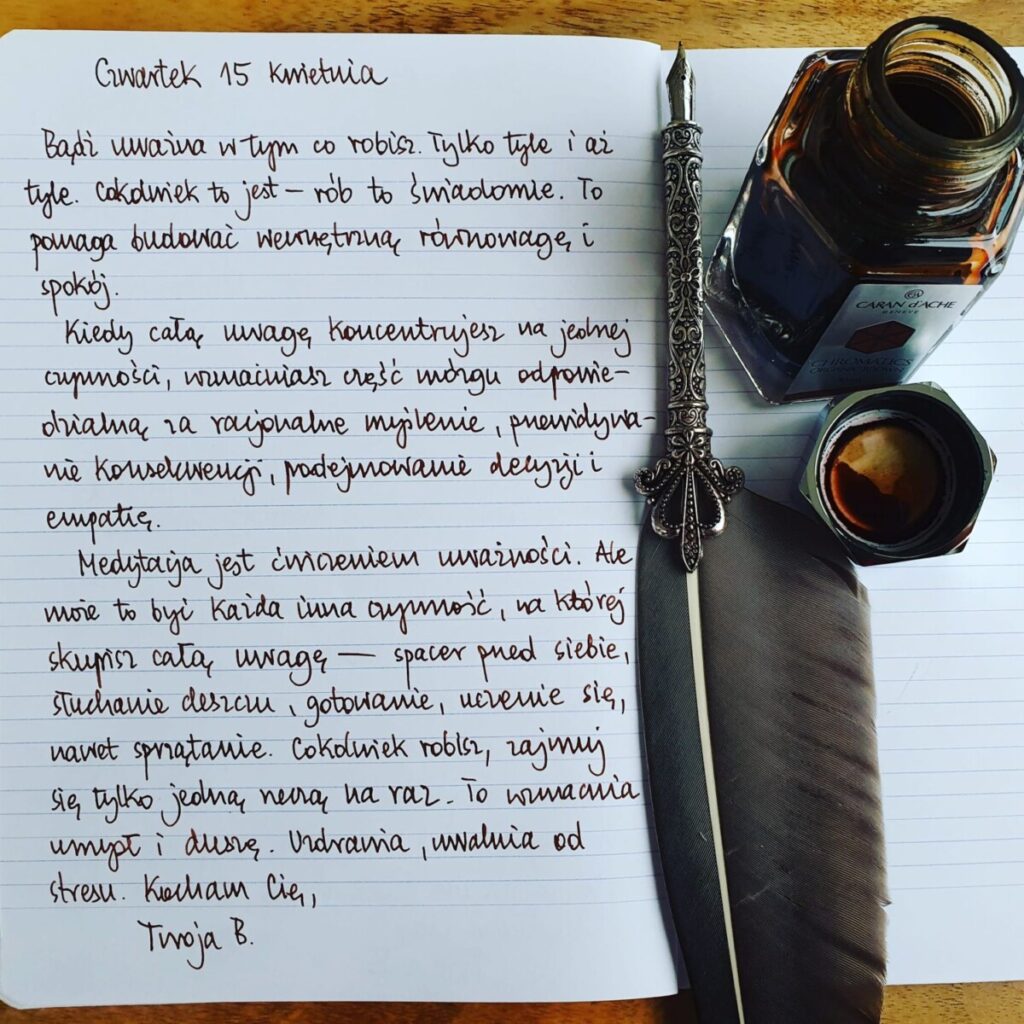 Czwartek 15 kwietnia
Bądź uważna w tym co robisz. Tylko tyle i aż
tyle. Cokolwiek to jest – rób to świadomie. To
pomaga budować wewnętrzną równowagę i
spokój.
Kiedy całą uwagę koncentrujesz na jednej
czynności, wzmacniasz część mózgu odpowie-
dzialną za racjonalne myślenie, przewidywa-
nie konsekwencji, podejmowanie decyzji i
empatię.
Medytacja jest ćwiczeniem uważności. Ale
może to być każda inna czynność, na której
skupisz całą uwagę — spacer przed siebie,
słuchanie deszczu, gotowanie, uczenie się,
nawet sprzątanie. Cokolwiek robisz, zajmuj
się tylko jedną rzeczą na raz. To wzmacnia
umysł i duszę. Uzdrawia, uwalnia od
stresu. Kocham Cię,
Twoja B.
CARAN d'ACHE
GENÈVE
CHROMATICS